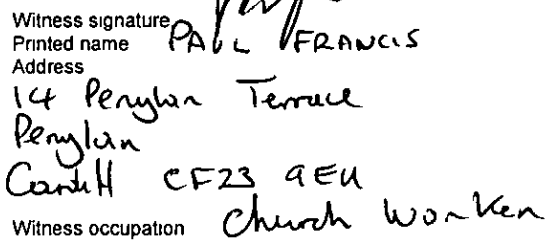 Witness signature
Printed name PAUL FRANCIS
Address
14 Penylan Terrace
Penylan
Cardiff CF23 9EU
Witness occupation Church Worker